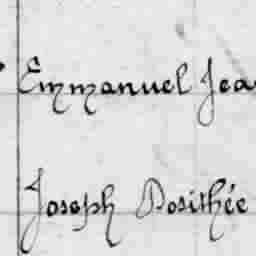 Emmanuel Jea
Joseph Dosithée